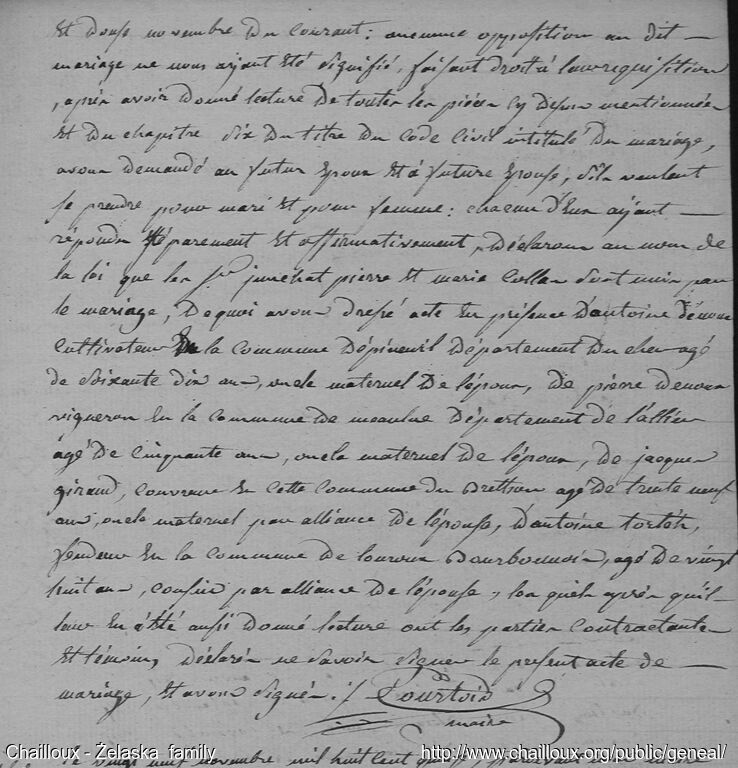 et douse novembre du courant : aucunne opposition au dit
mariage ne nous ayant été signifié, faisant droit à leur requisition
, après avoir donné lecture de toutes les pièces cy dessus mentionnées
et du chapitre six du titre du Code Civil intitulé du mariage,
avons demandé au futur epoux et à future epouse, s'ils veulent
se prendre pour mari et pour femme : chacun d'eux ayant
répondu séparement et affirmativement, déclarons au nom de
la loi que les Sr. junchat pierre et marie Collas sont unis par
le mariage, de quoi avons dressé acte en présence d'antoine
Cultivateur en la Commune d'épineuil département du cher agé
de soixante dix ans, oncle maternel de l'époux, de pierre
vigneron en la Commune de meaulne département de l'allier
âgé de cinquante ans, oncle maternel de l'époux, de jacques
giraud, couvreur en cette Commune du agé de trente neuf
ans, oncle maternel par alliance de l'épouse, d'antoine
fendeur en la Commune de louroux bourbonnois, agé de vingt
huit ans, cousin par alliance de l'épouse, les quels après qu'il
leur en a été aussi donné lecture ont les parties contractantes
et témoins, déclarés ne savoir signer le present acte de
mariage, et avons signés ./. Courtois
maire
le vingt neuf novembre mil huit cent
Chailloux - Żelaska family http://www.chailloux.org/public/geneal/